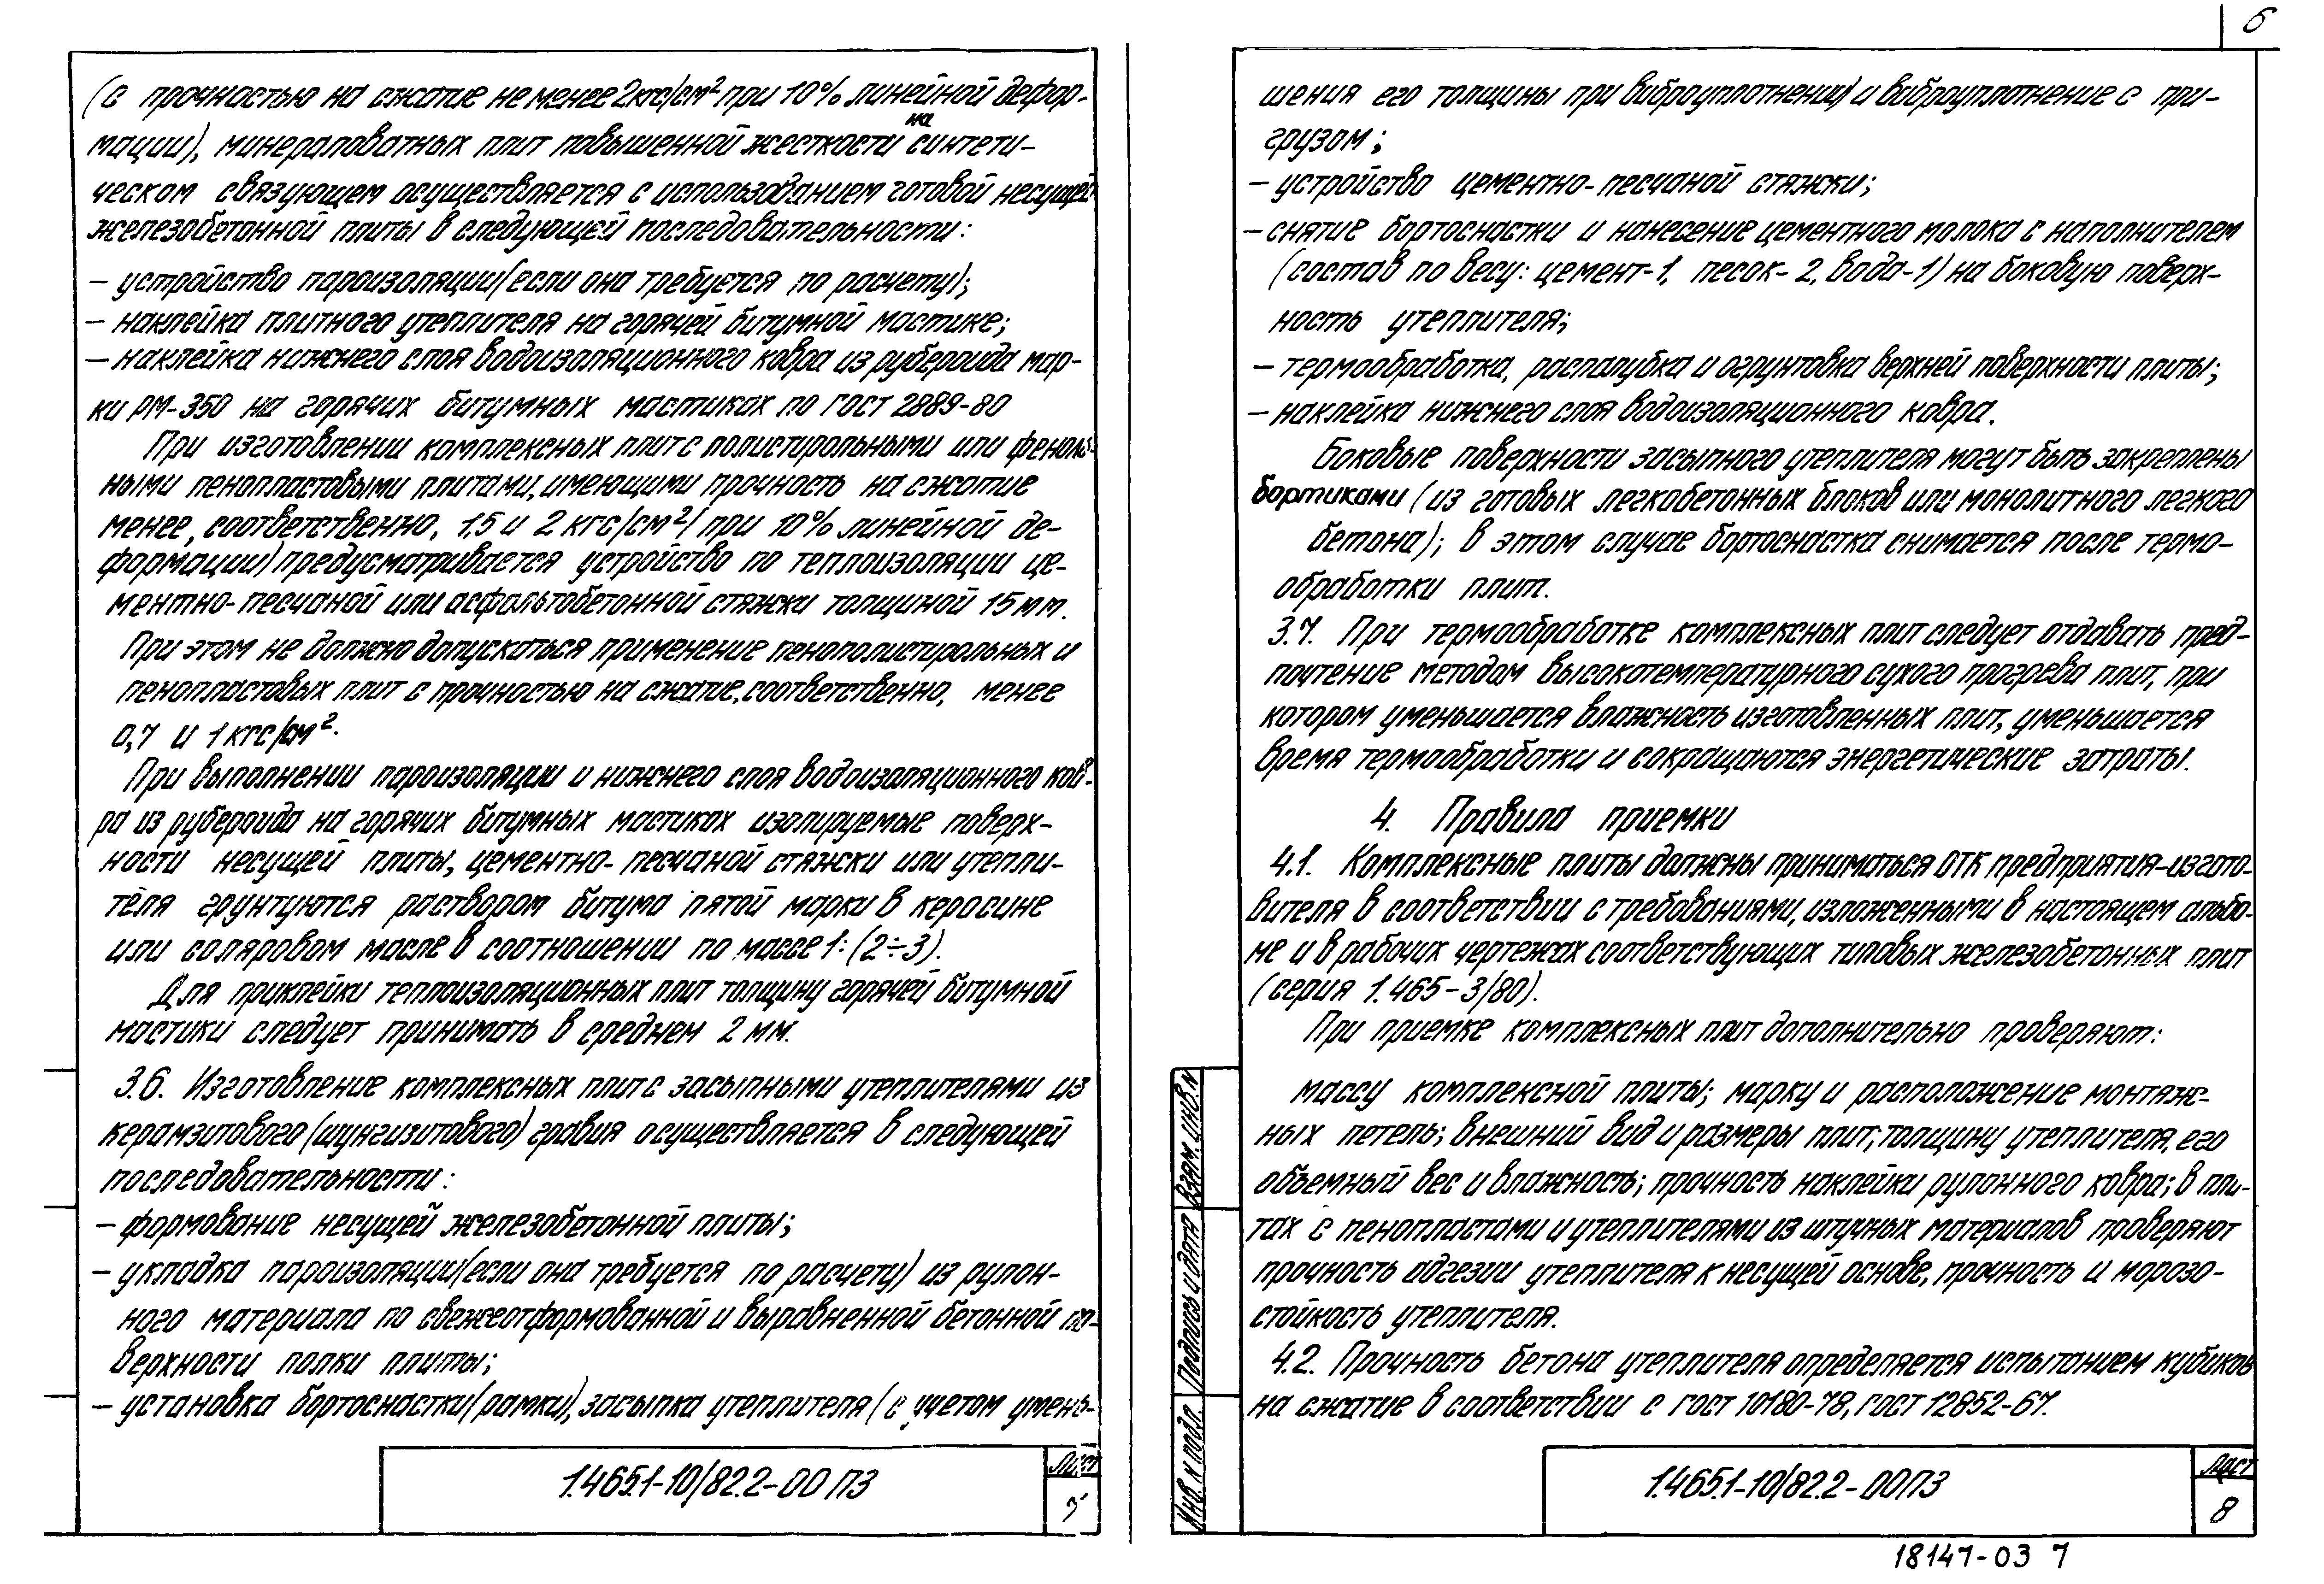 6
(с прочностью на сжатие не менее 2кгс/см² при 10% линейной дефор-
мации), минераловатных плит повышенной жесткости на синтети-
ческом связующем осуществляется с использованием готовой несущей
железобетонной плиты в следующей последовательности:
- устройство пароизоляции (если она требуется по расчету);
- наклейка плитного утеплителя на горячей битумной мастике;
- наклейка нижнего слоя водоизоляционного ковра из рубероида мар-
ки РМ-350 на горячих битумных мастиках по ГОСТ 2889-80
При изготовлении комплексных плит с полистирольными или феноль-
ными пенопластовыми плитами, имеющими прочность на сжатие
менее, соответственно, 1,5 и 2 кгс/см² (при 10% линейной де-
формации) предусматривается устройство по теплоизоляции це-
ментно-песчаной или асфальтобетонной стяжки толщиной 15 мм.
При этом не должно допускаться применение пенополистирольных и
пенопластовых плит с прочностью на сжатие, соответственно, менее
0,7 и 1 кгс/см².
При выполнении пароизоляции и нижнего слоя водоизоляционного ков-
ра из рубероида на горячих битумных мастиках изолируемые поверх-
ности несущей плиты, цементно-песчаной стяжки или утепли-
теля грунтуются раствором битума пятой марки в керосине
или соляровом масле в соотношении по массе 1:(2÷3).
Для приклейки теплоизоляционных плит толщину горячей битумной
мастики следует принимать в среднем 2 мм.
3.6. Изготовление комплексных плит с засыпными утеплителями из
керамзитового (шунгизитового) гравия осуществляется в следующей
последовательности:
- формование несущей железобетонной плиты;
- укладка пароизоляции (если она требуется по расчету) из рулон-
ного материала по свежеотформованной и выравненной бетонной по-
верхности полки плиты;
- установка бортоснастки (рамки), засыпка утеплителя (с учетом умень-
1.465.1-10/82.2-00 ПЗ
Лист
7
шения его толщины при виброуплотнении) и виброуплотнение с при-
грузом;
- устройство цементно-песчаной стяжки;
- снятие бортоснастки и нанесение цементного молока с наполнителем
(состав по весу: цемент-1, песок-2, вода-1) на боковую поверх-
ность утеплителя;
- термообработка, распалубка и огрунтовка верхней поверхности плиты;
- наклейка нижнего слоя водоизоляционного ковра.
Боковые поверхности засыпного утеплителя могут быть закреплены
бортиками (из готовых легкобетонных блоков или монолитного легкого
бетона); в этом случае бортоснастка снимается после термо-
обработки плит.
3.7. При термообработке комплексных плит следует отдавать пред-
почтение методам высокотемпературного сухого прогрева плит, при
котором уменьшается влажность изготовленных плит, уменьшается
время термообработки и сокращаются энергетические затраты.
4. Правила приемки
4.1. Комплексные плиты должны приниматься ОТК предприятия-изгото-
вителя в соответствии с требованиями, изложенными в настоящем альбо-
ме и в рабочих чертежах соответствующих типовых железобетонных плит
(серия 1.465-3/80).
При приемке комплексных плит дополнительно проверяют:
массу комплексной плиты; марку и расположение монтаж-
ных петель; внешний вид и размеры плит; толщину утеплителя, его
объемный вес и влажность; прочность наклейки рулонного ковра; в пли-
тах с пенопластами и утеплителями из штучных материалов проверяют
прочность адгезии утеплителя к несущей основе, прочность и морозо-
стойкость утеплителя.
4.2. Прочность бетона утеплителя определяется испытанием кубиков
на сжатие в соответствии с ГОСТ 10180-78, ГОСТ 12852-67.
Взам. инв. N
Подпись и дата
Инв. N подл.
1.465.1-10/82.2-00ПЗ
Лист
8
18147-03 7